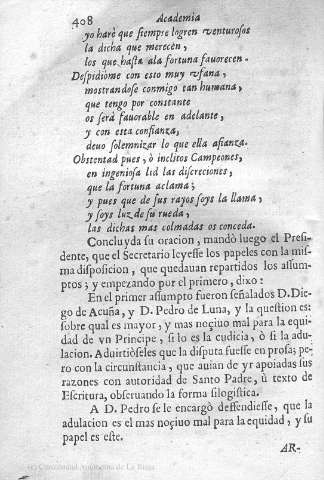 408 Academia
yo harè que siempre logren venturosos
la dicha que merecèn,
los que hasta ala fortuna fauorecen.
Despidiòme con esto muy vfana,
mostrandose conmigo tan humana,
que tengo por constante
os serà fauorable en adelante,
y con esta confiança,
deuo solemnizar lo que ella afiança.
Obstentad pues, ò inclitos Campeones,
en ingeniosa lid las discreciones,
que la fortuna aclama;
y pues que de sus rayos soys la llama,
y soys luz de su rueda,
las dichas mas colmadas os conceda.
Concluyda su oracion, mandò luego el Presi-
dente, que el Secretario leyesse los papeles con la mis-
ma disposicion, que quedauan repartidos los assum-
ptos; y empezando por el primero, dixo:
En el primer assumpto fueron señalados D. Die-
go de Acuña, y D. Pedro de Luna, y la question es:
sobre qual es mayor, y mas nociuo mal para la equi-
dad de vn Principe, si lo es la cudicia, ò si la adu-
lacion. Aduirtiòseles que la disputa fuesse en prosa; pe-
ro con la circunstancia, que auian de yr apoyadas sus
razones con autoridad de Santo Padre, ù texto de
Escritura, obseruando la forma silogistica.
A D. Pedro se le encargò deffendiesse, que la
adulacion es el mas nociuo mal para la equidad, y su
papel es este.
AR-
(c) Comunidad Autónoma de La Rioja